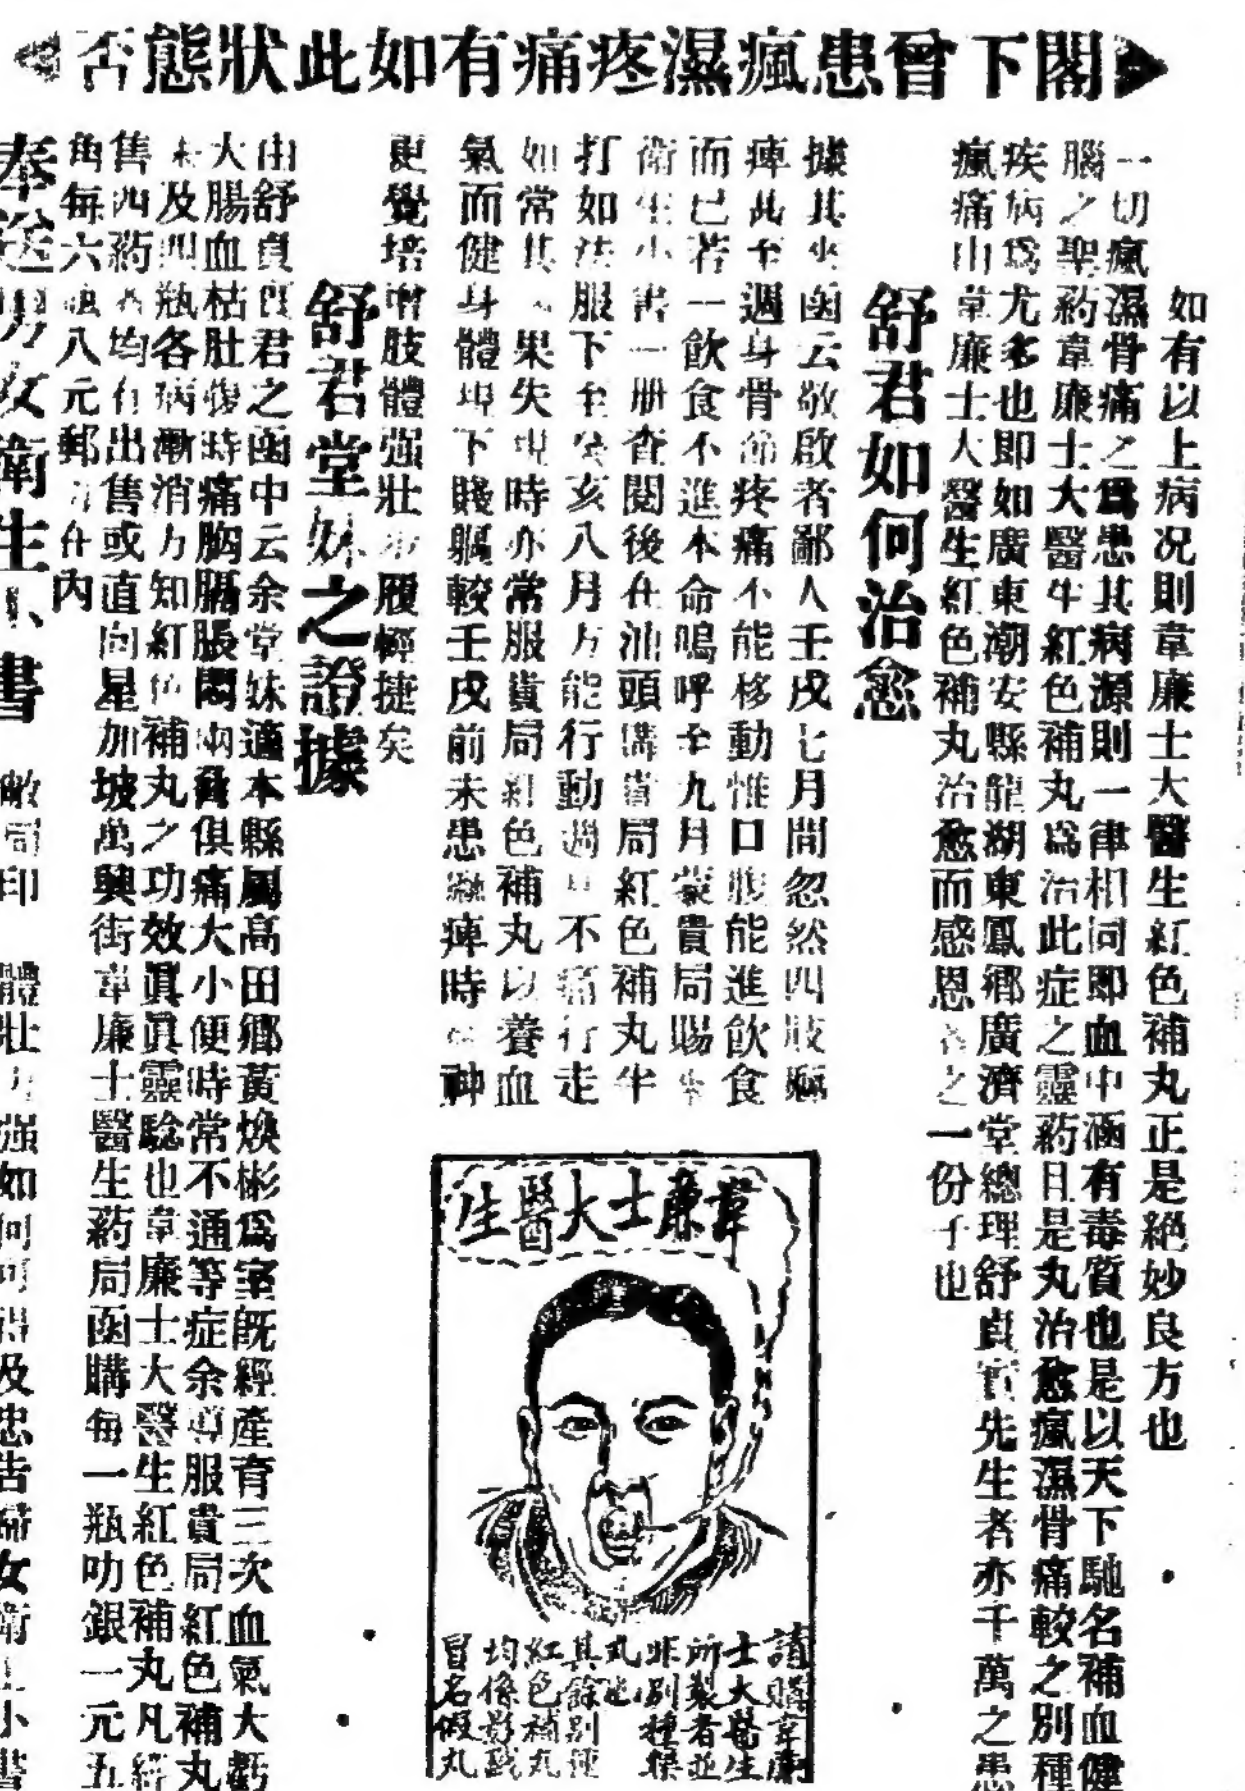 閣下曾患瘋濕疼痛有如此狀態否
如有以上病况則韋廉士大醫生紅色補丸正是絕妙良方也
一切瘋濕骨痛之爲患其病源則一律相同即血中涵有毒質也是以天下馳名補血健
腦之聖葯韋廉士大醫生紅色補丸爲治此症之靈葯且是丸治愈瘋濕骨痛較之別種
疾病爲尤多也即如廣東潮安縣龍湖東鳳鄉廣濟堂總理舒貞實先生者亦千萬之患
瘋痛由韋廉士大醫生紅色補丸治愈而感恩者之一份子也
舒君如何治愈
據其來函云敬啟者鄙人壬戌七月間忽然四肢瘋
痺甚至週身骨節疼痛不能移動惟口腹能進飲食
而已若一飲食不進本命嗚呼至九月蒙貴局賜
衛生小書一册查閱後在汕頭購貴局紅色補丸半
打如法服下至癸亥八月方能行動週身不痛行走
如常其效果失現時亦常服貴局紅色補丸以養血
氣而健身體現下賤軀較壬戌前未患瘋痺時神
更覺培增肢體强壯步履輕捷矣
舒君堂妹之證據
由舒貞實君之函中云余堂妹適本縣屬高田鄉黃煥彬爲室旣經產育三次血氣大虧
大腸血枯肚後時痛胸膈脹悶俱痛大小便時常不通等症余導服貴局紅色補丸
未及四瓶各病漸消方知紅色補丸之功效眞眞靈騐也韋廉士大醫生紅色補丸凡經
售西葯者均有出售或直向星加坡萬興街韋廉士醫生葯局函購每一瓶叻銀一元五
角每六瓶八元郵力在內
奉送男女衛生小書
敝局印 體壯力强如何可得及忠告婦女衛生小書
韋廉士大醫生
請購韋廉
士大醫生
所製者並
非別種藥
丸也
其餘別種
紅色補丸
均係影戤
冒名假丸